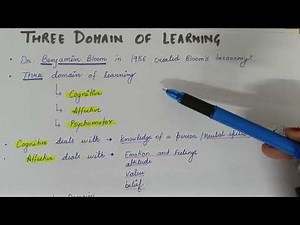 THREE DOMAIN OF LEARNING
• Dr Benjamin Bloom in 1956 created Bloom's taxonomy
• Three domain of learning
↳ Cognitive
↳ Affective
↳ Psychomotor
• Cognitive deals with → knowledge of a person / Mental
• Affective deals with → Emotion and Feelings
attitude
value
belief